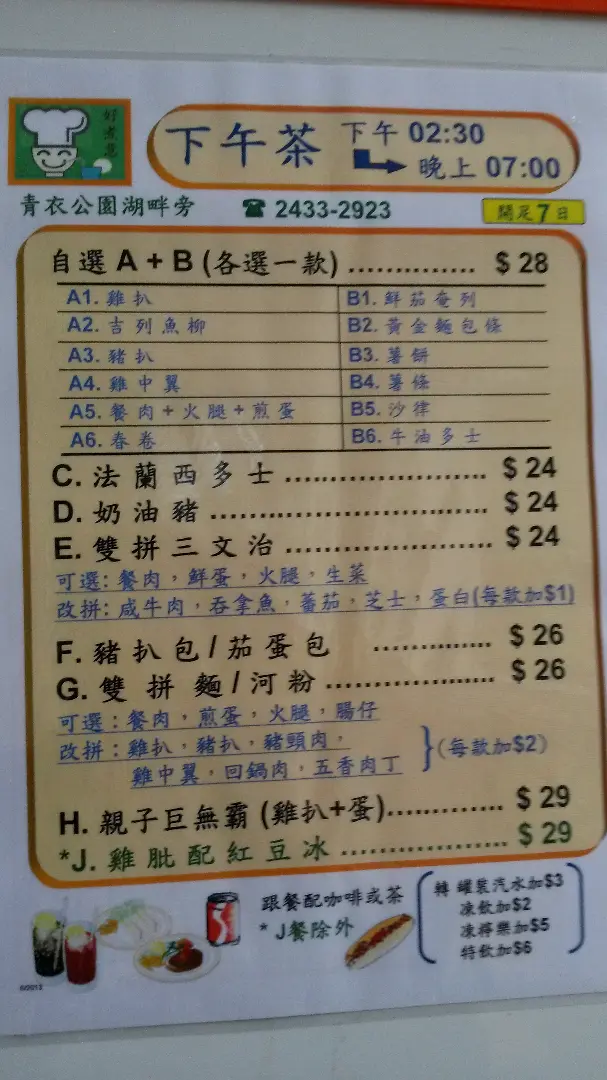 好煮意
下午茶 下午 02:30
晚上 07:00
青衣公園湖畔旁 ☎ 2433-2923 開足7日
自選 A + B (各選一款) .............. $ 28
A1. 雞扒 B1. 鮮茄奄列
A2. 吉列魚柳 B2. 黃金麵包條
A3. 豬扒 B3. 薯餅
A4. 雞中翼 B4. 薯條
A5. 餐肉+火腿+煎蛋 B5. 沙律
A6. 春卷 B6. 牛油多士
C. 法蘭西多士 ...................... $ 24
D. 奶油豬 .............................. $ 24
E. 雙拼三文治 ...................... $ 24
可選: 餐肉，鮮蛋，火腿，生菜
改拼: 咸牛肉，吞拿魚，蕃茄，芝士，蛋白(每款加$1)
F. 豬扒包/茄蛋包 ............. $ 26
G. 雙拼麵/河粉 ................... $ 26
可選：餐肉，煎蛋，火腿，腸仔
改拼：雞扒，豬扒，豬頸肉，
雞中翼，回鍋肉，五香肉丁 (每款加$2)
H. 親子巨無霸 (雞扒+蛋)............ $ 29
*J. 雞肶配紅豆冰 ................. $ 29
跟餐配咖啡或茶
* J餐除外
轉 罐裝汽水加$3
凍飲加$2
凍檸樂加$5
特飲加$6